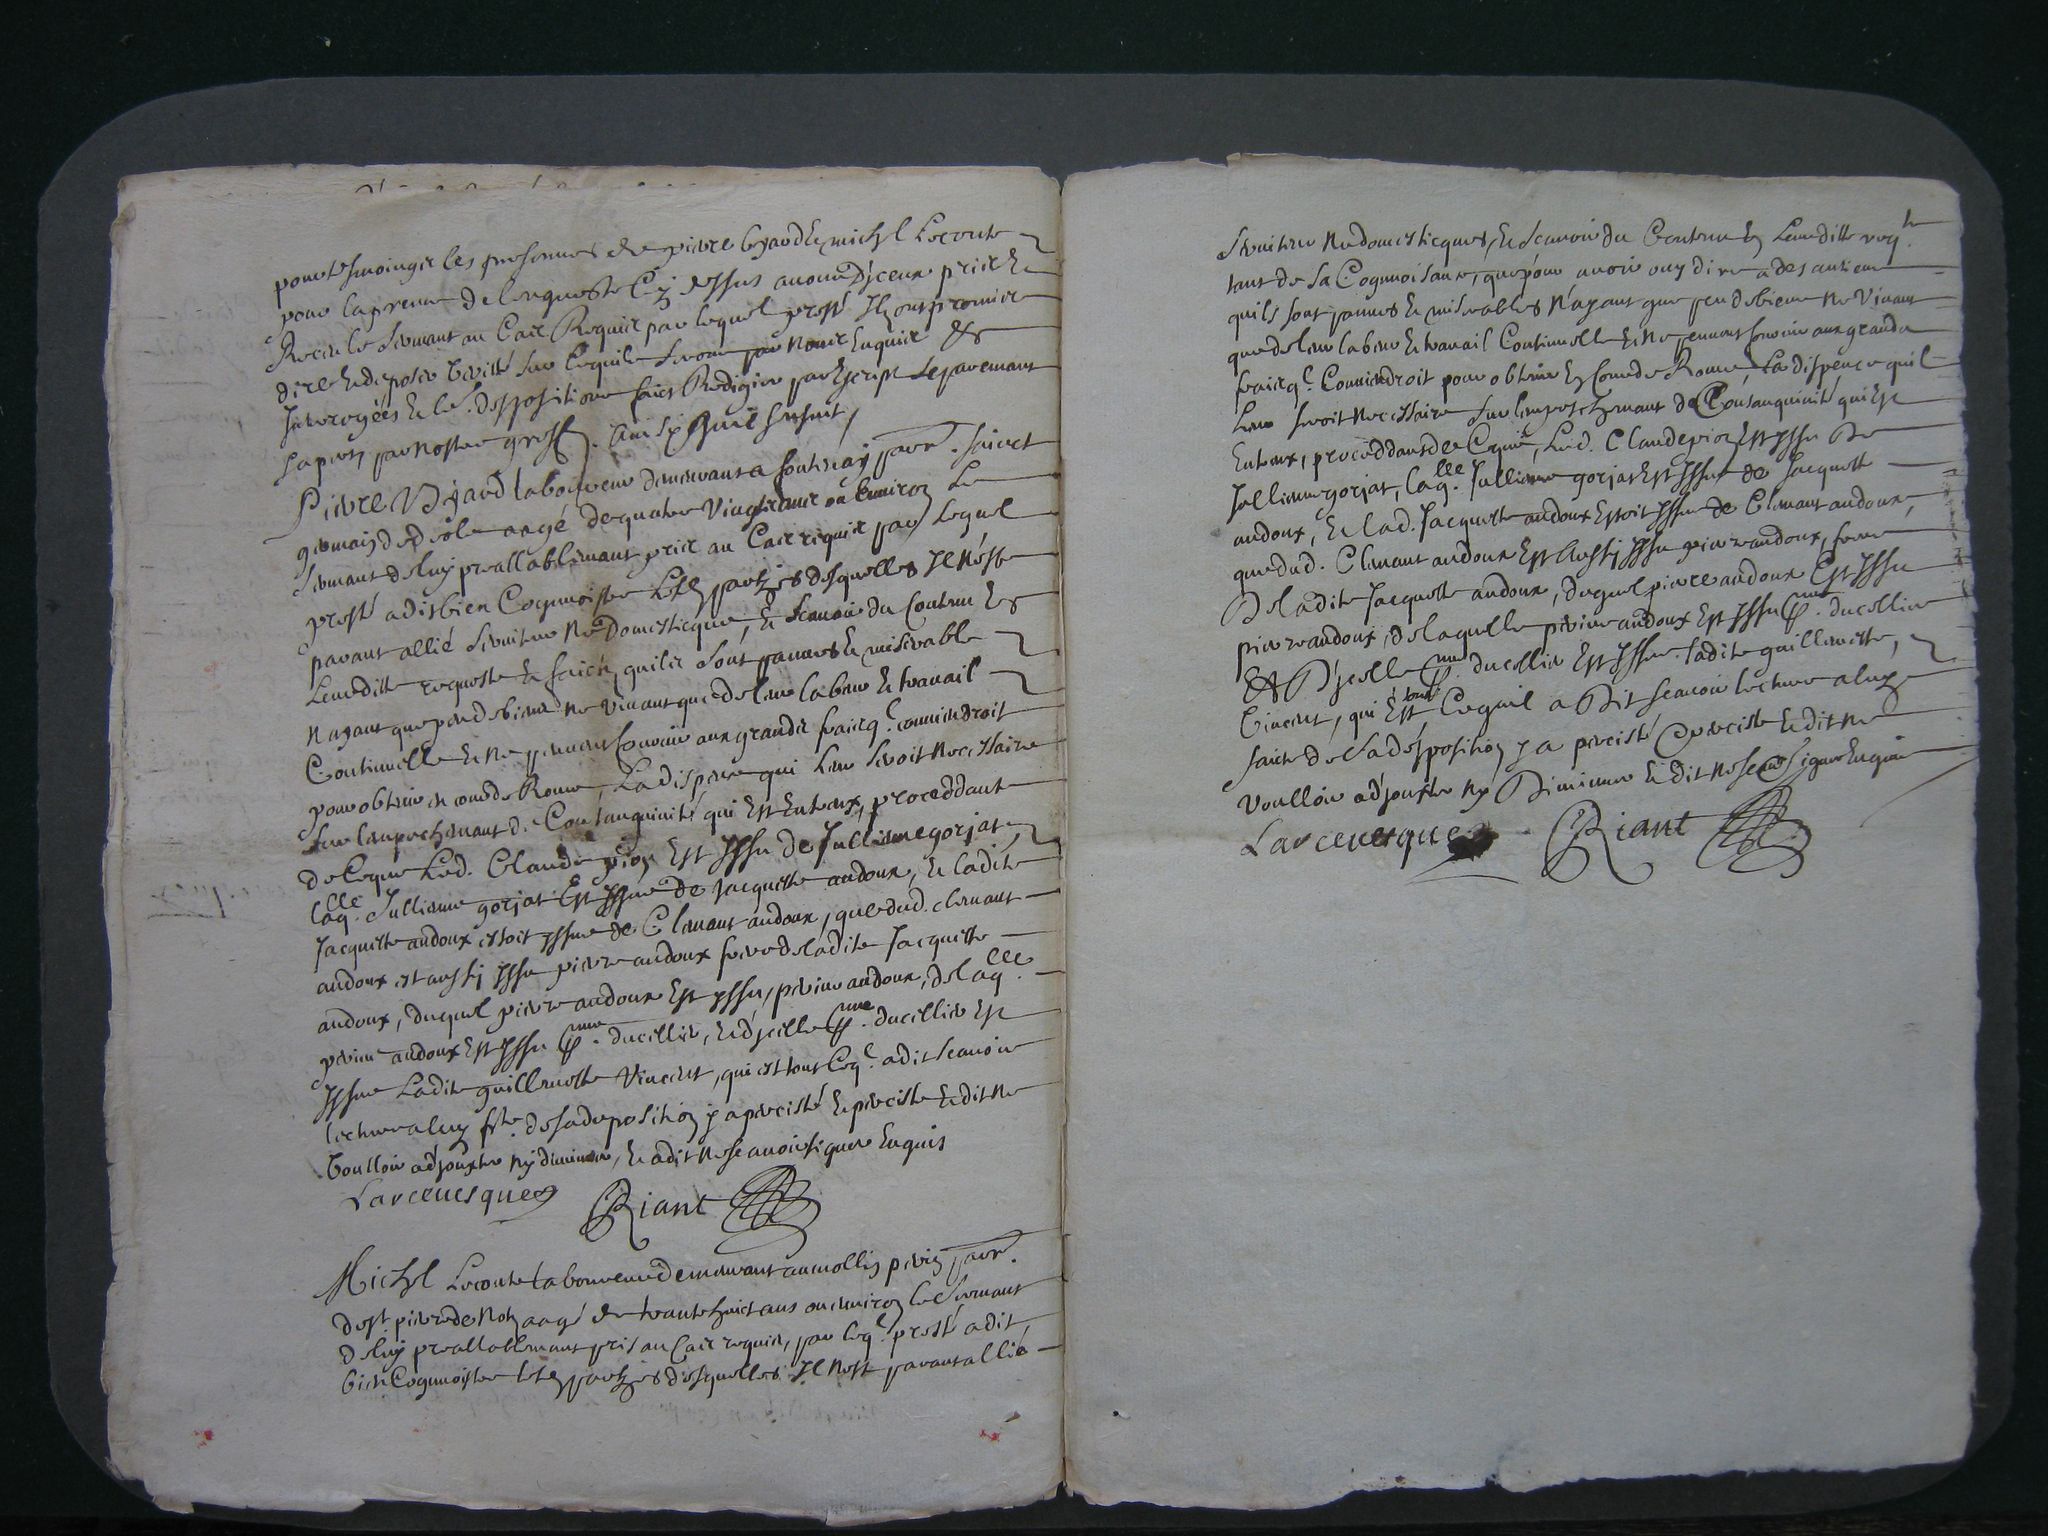 pour tesmoinger les personnes de pierre byard & michel Leconte
pour lapreuve de lenqueste Cy dessus avons Diceux pris &
Receu le sermant au Cas Requis par lequel presté Ilz ont promis
dire & deposer verité sur Ce quilz seront par nous Enquis &
Interrogées & les depositions faict Rediger par Escript separemant
Pierre Byard laboureur demeurant a fontenay parr. sainct
germain dedéole aagé de quatre vingt ans ou Environ Le
sermant de luy preallablemant pris au Cas requis par Lequel
presté a dit bien Cognoistre lesd parties desquelles Il nest
parant allié serviteur ne Domesticque, & scavoir du Contenu En
Leurditte requeste & faictz quilz sont pauvres & miserable
Nayant que peu de biens ne vivant que de leur labeur & travail
Continuelle & ne peuvent fournir aux grandz fraicz q. conviendroit
pour obtenir en cour de Rome La dispence qui Leur seroit necessaire
sur lenpechemant de Consanguinité qui Est Entreux, proceddante
de Ceque Led. Claude pion Est Issu de Jullienne gorjat,
laqlle Jullienne gorjat Est Issue de Jacquette audoux, & ladite
Jacquette audoux estoit Issue de Clemant audoux, que dud. clemant
audoux est aussy Issu pierre audoux frere de ladite Jacquette
audoux, duquel pierre audoux Est Issu, perine audoux, de laqlle
perine audoux Est Issu ducellier, & dicelle ducellier Est
Issue Ladite guillemette Vincent, qui est tout Ceq. a dit scavoir
lecture a luy fte. de sa deposition y a percisté & perciste & dit ne
voulloir adjouxter ny diminuer, & a dit ne scavoir signer Enquis
Larcevesque Riant
Michel Leconte laboureur demeurant au mollin perin parr.
de st pierre de aagé de trante huict ans ou environ le sermant
de luy preallablemant pris au Cas requis, par leq. presté a dit
bien Cognoistre lesd parties desquelles Il nest parant allié
serviteur ne domesticques, & scavoir du Contenu En Leurditte reqte
tant de sa Cognoisance, que pour avoir ouy dire a des antiens
quilz sont pauvres & miserables Nayant que peu de biens ne Vivant
que de leur labeur & travail Continuelle & ne peuvent fournir aux grandz
fraicz q. Conviendroit pour obtenir En Cour de Rome, La dispence quil
Leur seroit necessaire sur lempeschemant de Consanguinité qui Est
Entreux, proceddans de Ceque, Led. Claude pion Est Issu De
Jullienne gorjat, laqlle. Jullienne gorjat Est Issue de Jacquette
audoux, & lad. Jacquette audoux Estoit Issue de Clemant audoux,
que dud. Clemant audoux Est Aussy Issu pierre audoux, frere
De ladite Jacquette audoux, duquel pierre audoux Est Issu
pierre audoux, de laquelle perine audoux Est Issu ducellier
Et Dicelle ducellier Est Issue ladite guillemette,
Vincent, qui Est tout Cequil a Dit scavoir lecture a luy
faicte de sa deposition y a percisté & perciste & dit ne
voulloir adjouxter ny Diminuer & dit ne scavoir signer Enquis
Larcevesque Riant